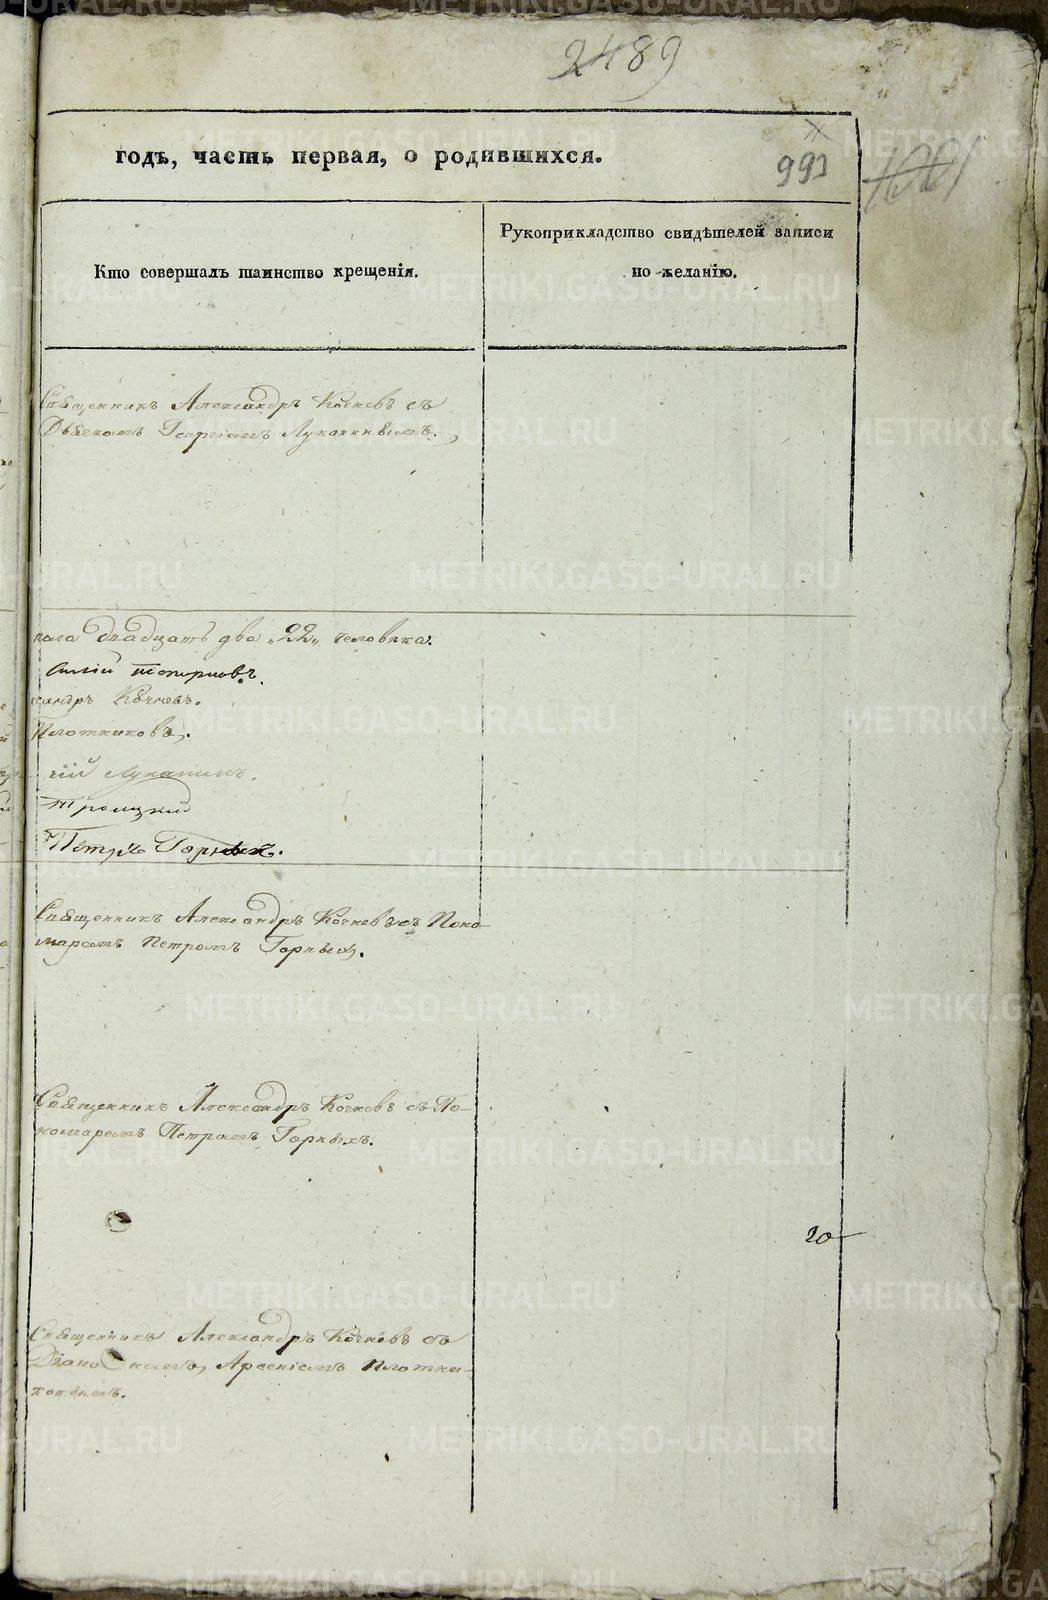 2489
годъ, часть первая, о родившихся.
993
Кто совершалъ таинство крещенія.
Рукоприкладство свидѣтелей записи
по желанію.
Священникъ Александръ Кочневъ съ
Дьякомъ Георгіемъ Луканинымъ.
двадцать два „22„ человѣка.
Кочневъ.
Плотниковъ.
гій Луканинъ.
Троицкій
Петръ Горныхъ.
Священникъ Александръ Кочневъ съ Поно-
маремъ Петромъ Горныхъ.
Священникъ Александръ Кочневъ съ По-
номаремъ Петромъ Горныхъ.
20
Священникъ Александръ Кочневъ съ
Діакономъ, Арсеніемъ Плотни-
ковымъ.
METRIKI.GASO-URAL.RU